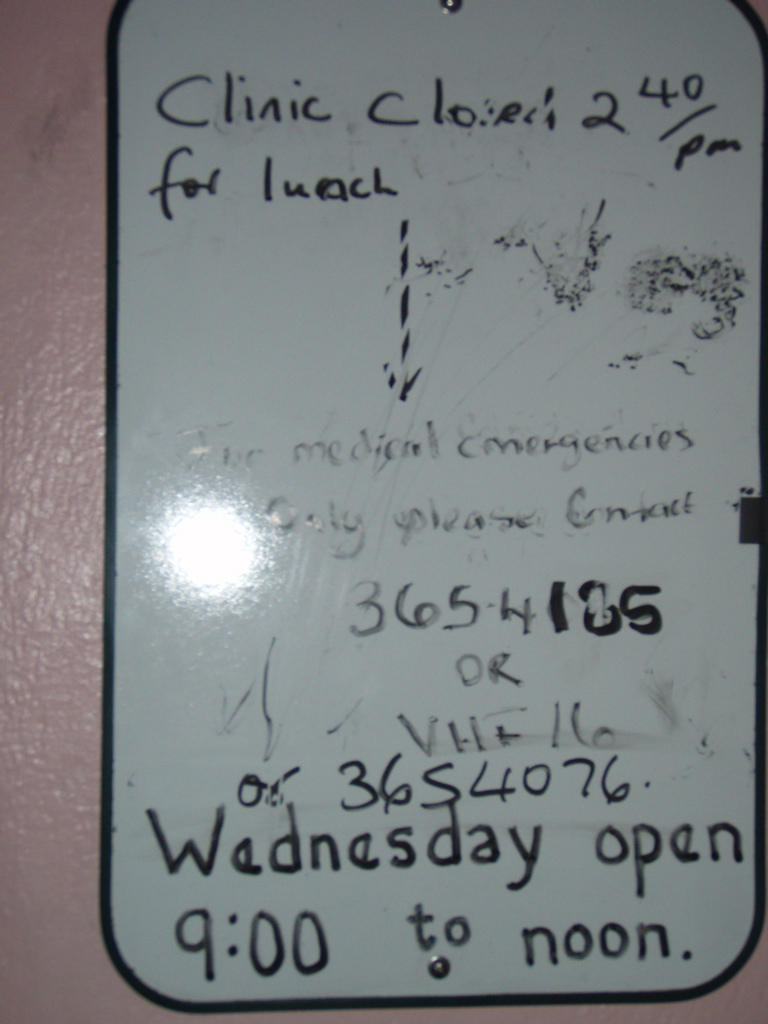 Clinic Closed 2 40/pm
for lunch
For medical emergencies
Only please Contact
365-4185
OR
VHF 16
or 3654076.
Wednesday open
9:00 to noon.